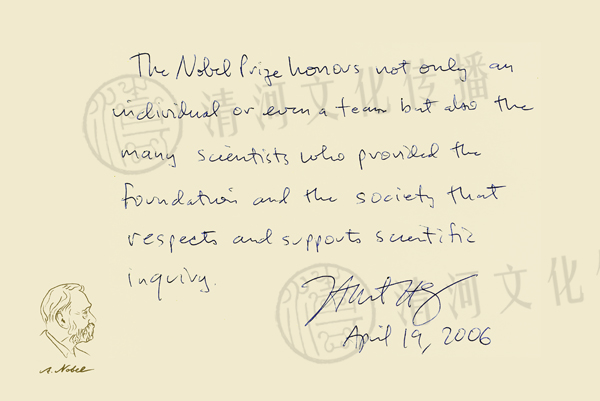 The Nobel Prize honors not only an
individual or even a team but also the
many scientists who provided the
foundation and the society that
respects and supports scientific
inquiry.
April 19, 2006
A. Nobel
清河文化传播
清河文化传